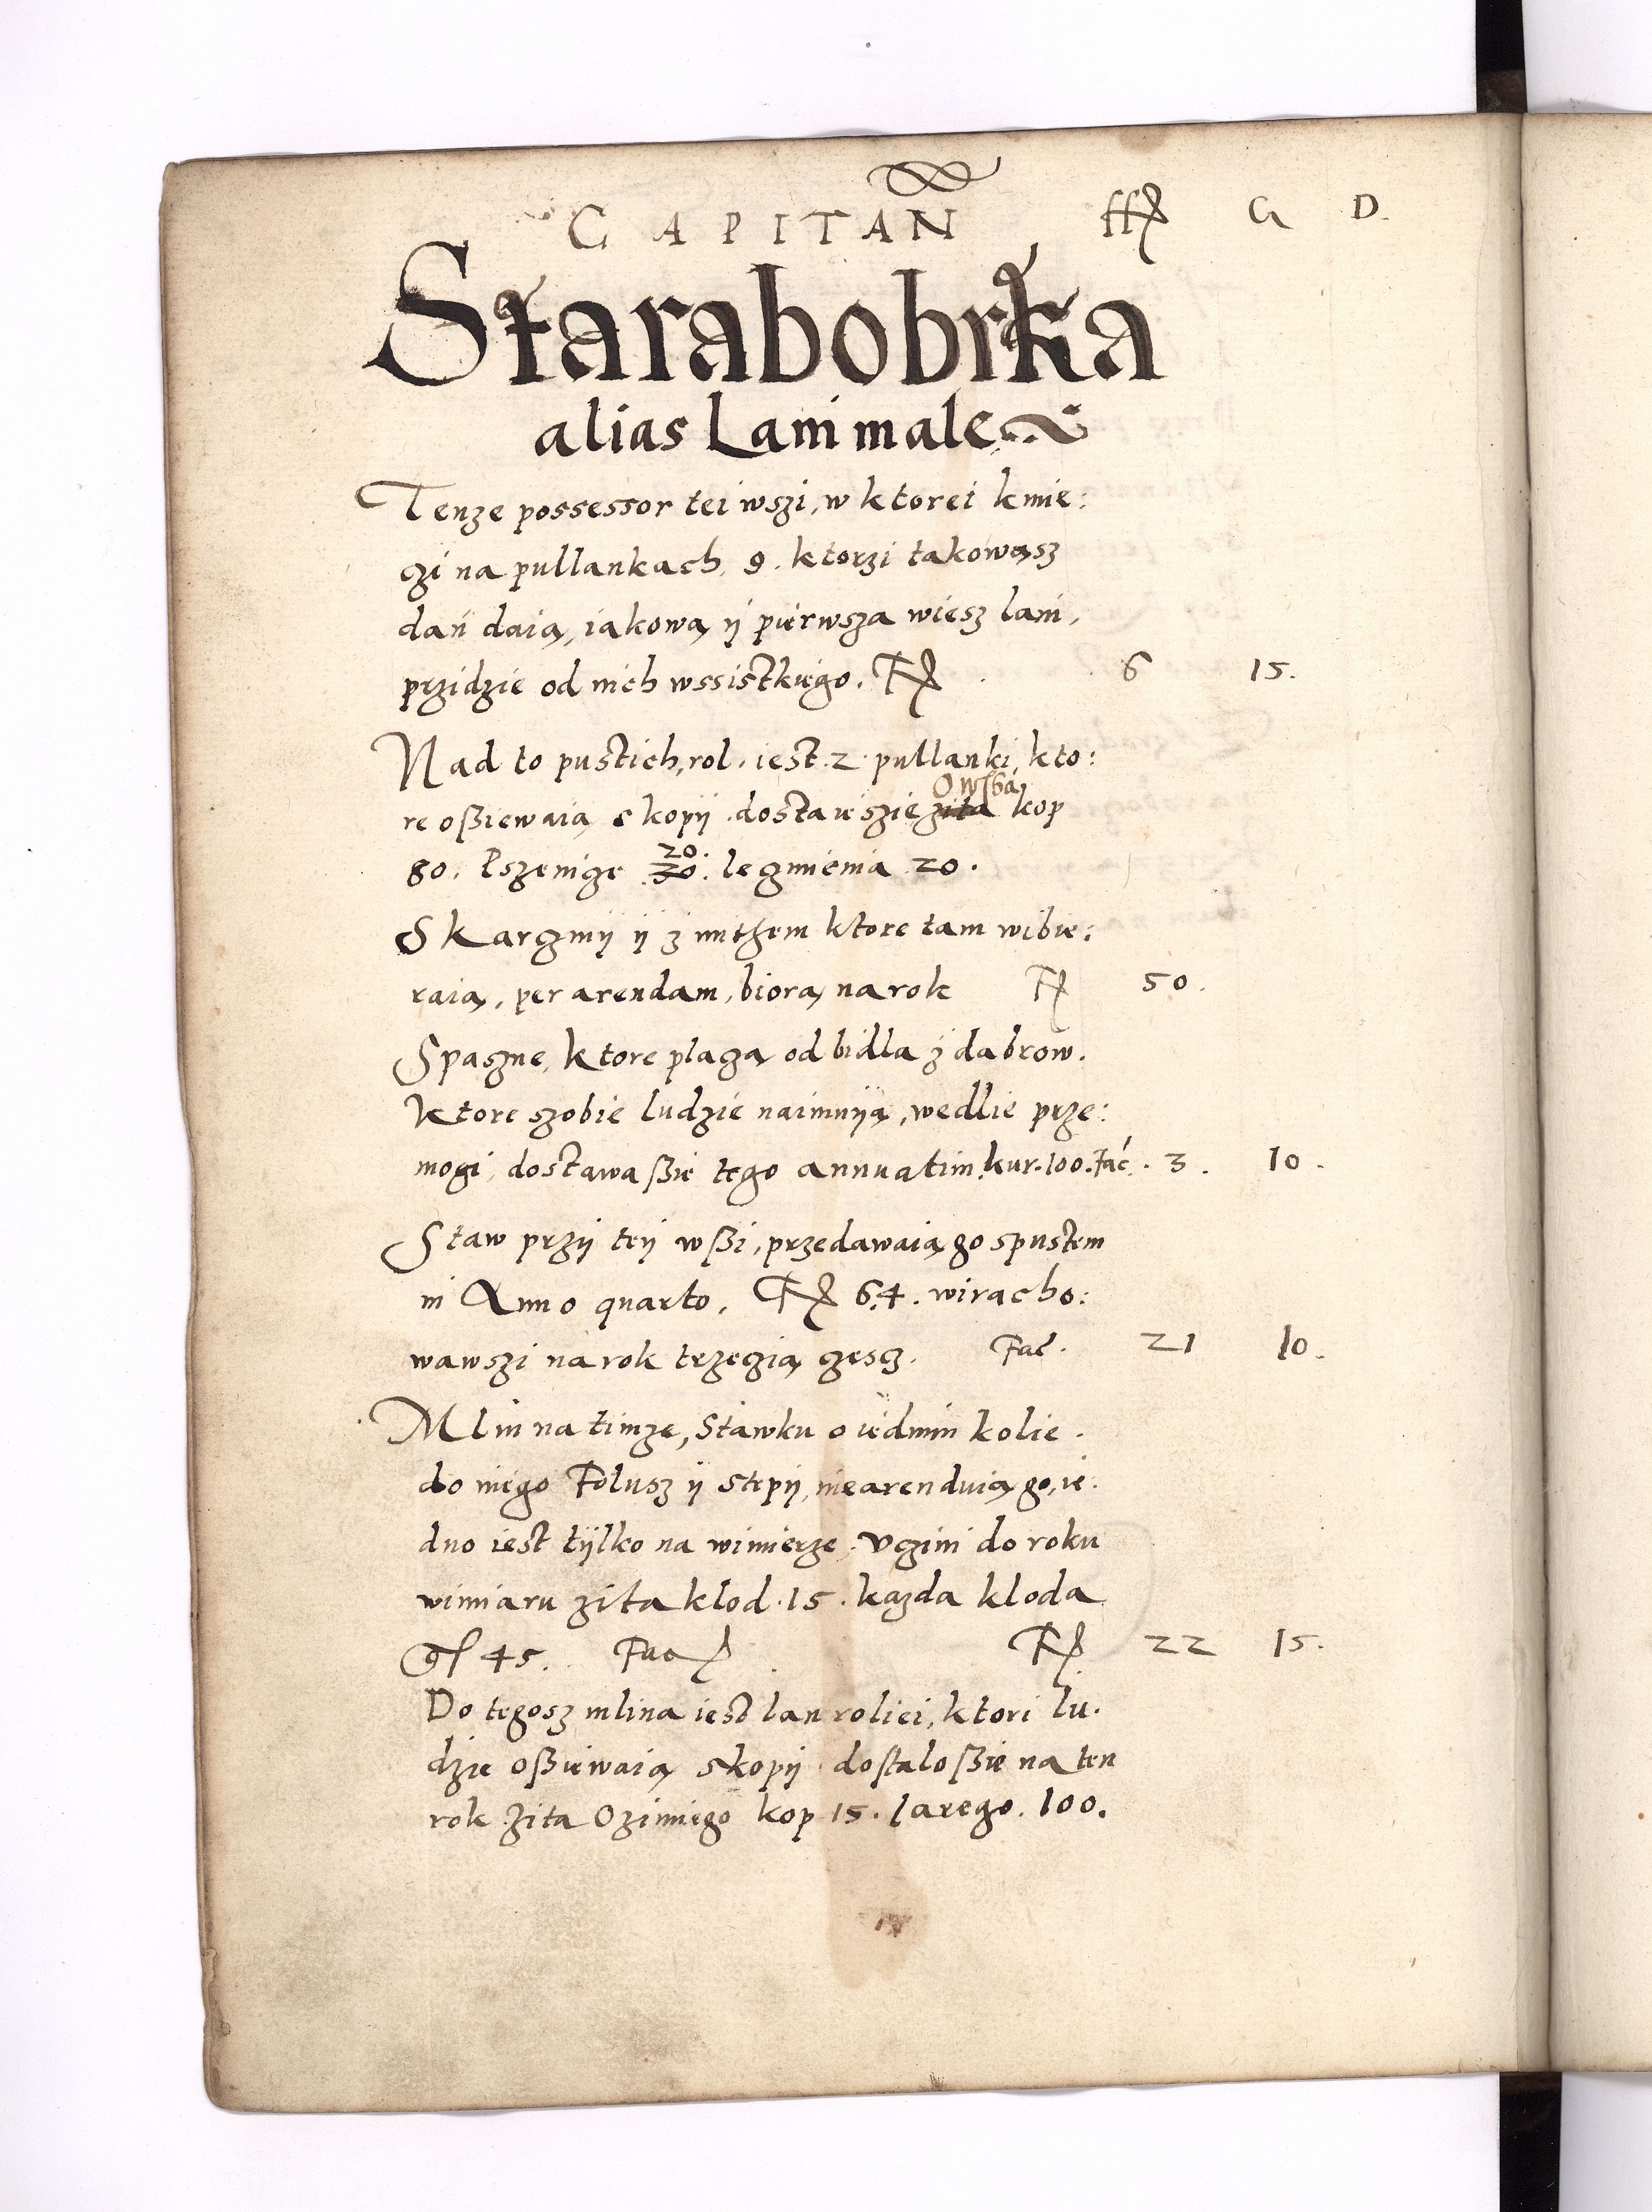 CAPITAN ff G D.
Starabobrka
alias Lani male
Tenze possessor tei wszi, w ktorei kmie:
czi na pullankach. 9. ktorzi takowąsz
dań daią, iakową ÿ pierwsza wiesz lani,
przidzie od nich wssistkiego. F 6 15.
Nad to pustich, rol. iest. 2. pullanki, kto:
re oßiewaią s kopÿ. dostaie szie zita Owßa kop
80. Pszenicze 30. 20. legmienia 20.
S karczmÿ ÿ z mithem ktore tam wibie:
raią, per arendam, biorą na rok F 50.
Spaszne, ktore placzą od bidla z dabrow.
ktore szobie ludzie naimuÿą, wedlie prze:
mogi, dostawa ßie tego annuatim kur. 100. Fac. 3. 10.
Staw przÿ teÿ wßi, przedawaią go spustem
in Anno quarto. F 64. wiracho:
wawszi na rok trzeczią czescz. Fac. 21 10.
Mlin na timze, Stawku o iednim kolie.
do niego Folusz ÿ Stepÿ, nie arenduią go, ie:
dno iest tÿlko na wimierze. Vczini do roku
wimiaru zita klod. 15. kazda kloda
gſ 45. Fac F 22 15.
Do tegosz mlina iest lan roliei, ktori lu.
dzie oßiewaią s kopÿ. dostalo ßie na ten
rok zita Ozimiego kop 15. Iarego. 100.